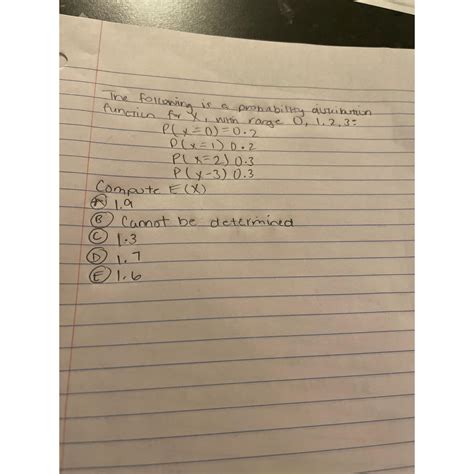 The following is a probability distribution
function for X, with range 0, 1, 2, 3:
P(x=0)=0.2
P(x=1) 0.2
P(x=2) 0.3
P(x-3) 0.3
Compute E(X)
A 1.9
B Cannot be determined
C 1.3
D 1.7
E 1.6